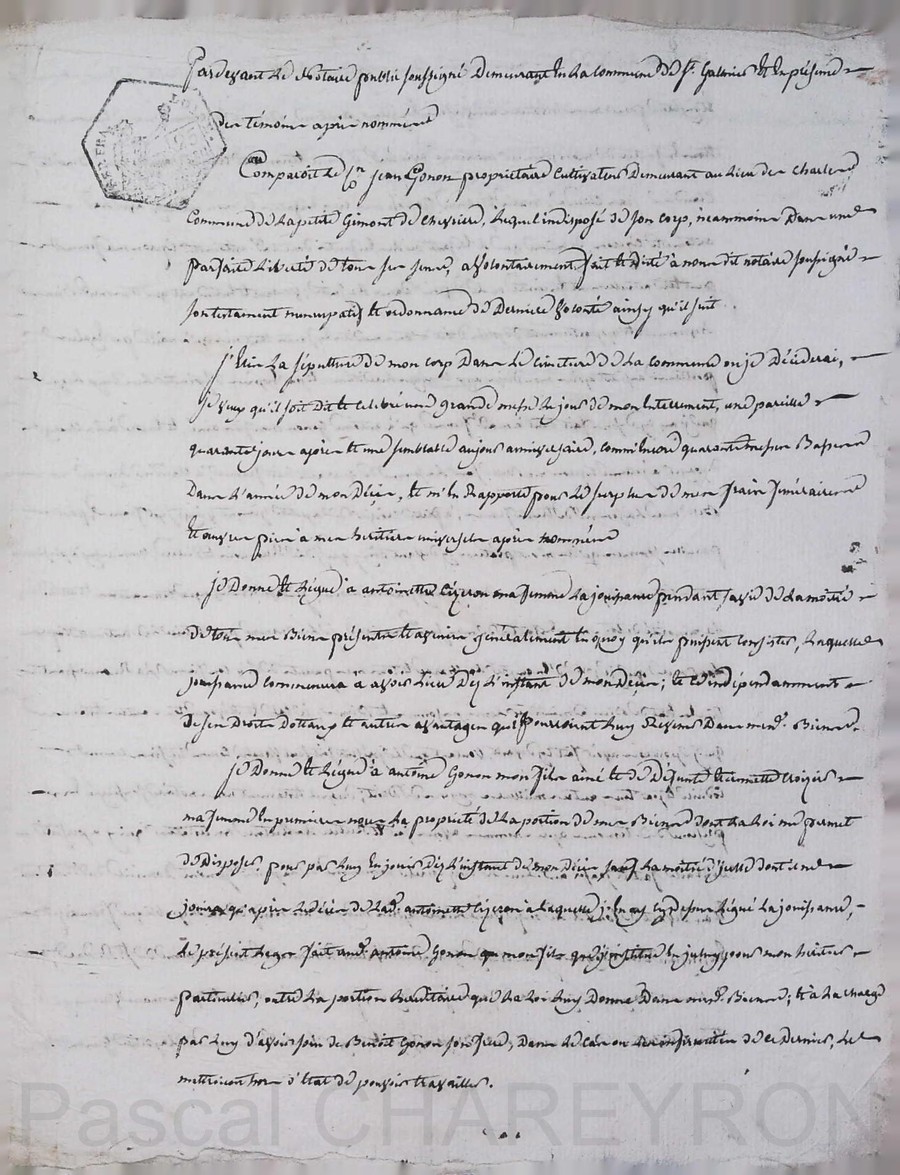 Pardevant le Notaire public soussigné Demeurant en la commune de St. Galmier et en présence
des témoins après nommés
Comparoit le Cn. jean Gonon propriétaire Cultivateur Demeurant au lieu des
Commune de la petite Gimont de Chevrière, lequel indisposé de son corp, neanmoins Dans une
parfaite liberté de tous ses sens, a volontairement fait et dicté à nous dit notaire soussigné
son testament nuncupatif et ordonnance de Derniere volonté ainsy qu'il suit
j'Elis la sépulture de mon corp Dans le cimetiere de la commune ou je Décéderai,
je veux qu'il soit Dit et célébré une grande messe le jour de mon Enterrement, une pareille
quarante jours après et une semblable au jour anniversaire, comm'Encore quarante messes Basses
Dans l'année de mon Décès, et m'En Rapporte pour le surplus de mes frais funéraires
et œuvres pies à mes heritiers universels après nommés
je Donne et Légue à antoinette Cizeron ma femme la jouissance pendant sa vie de la moitié
de tous mes Biens présents et avenir généralement En quoy qu'ils puissent Consister, laquelle
jouissance commencera à avoir lieu Dez l'instant de mon Décès; et ce indépendamment
de ses Droits Dotaux et autres avantages qui pourroient luy Revenir Dans mesd. Biens.
je Donne et Légue à antoine Gonon mon fils ainé et de Défunte
ma femme En premieres noces la propriété de la portion de mes Biens dont la Loi me permet
de Disposer pour par luy En jouir Dez l'instant de mon Décès, sauf la moitié d'jcelle dont il ne
jouira qu'après le Décès de lad. antoinette Cizeron à laquelle j'En ay cy devant Légué la jouissance,
le présent Legs fait aud. antoine Gonon mon fils que j'institue En jceluy pour mon héritier
particulier, outre la portion héréditaire que la Loi luy Donne Dans mesd. Biens; et à la charge
par luy d'avoir soin de Benoit Gonon son frere, Dans le cas ou les infirmités de ce Dernier, le
mettroient hors d'état de pouvoir travailler.
Pascal CHAREYRON